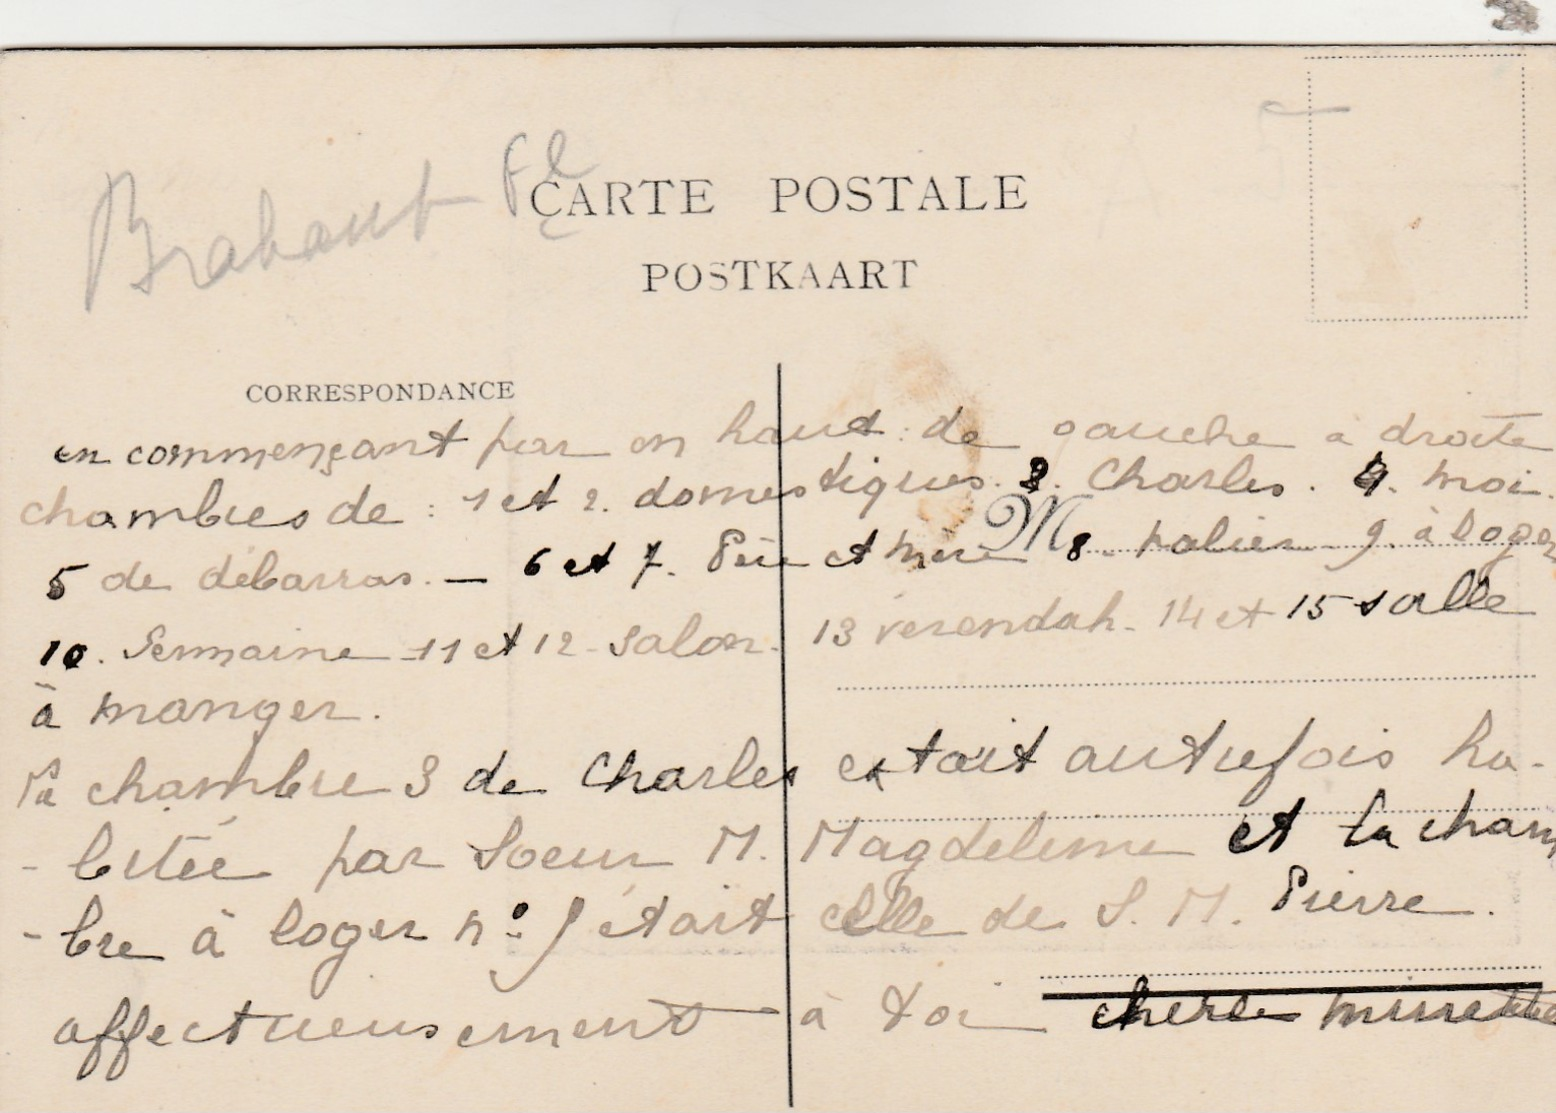 Brabant Fl
CARTE POSTALE
POSTKAART
CORRESPONDANCE
en commençant par en haut : de gauche à droite
chambres de : 1 et 2. domestiques. 3. Charles. 4. moi.
5 de débarras. — 6 et 7. Père et mère M 8. palier 9. à loger
10. Semaine - 11 et 12 - Salon. 13 verendah - 14 et 15 salle
à manger.
la chambre 3 de Charles était autrefois ha-
- bitée par Soeur M. Magdeleine et la cham
- bre à loger n° 9 était celle de S. M. Pierre.
affectueusement à toi chere